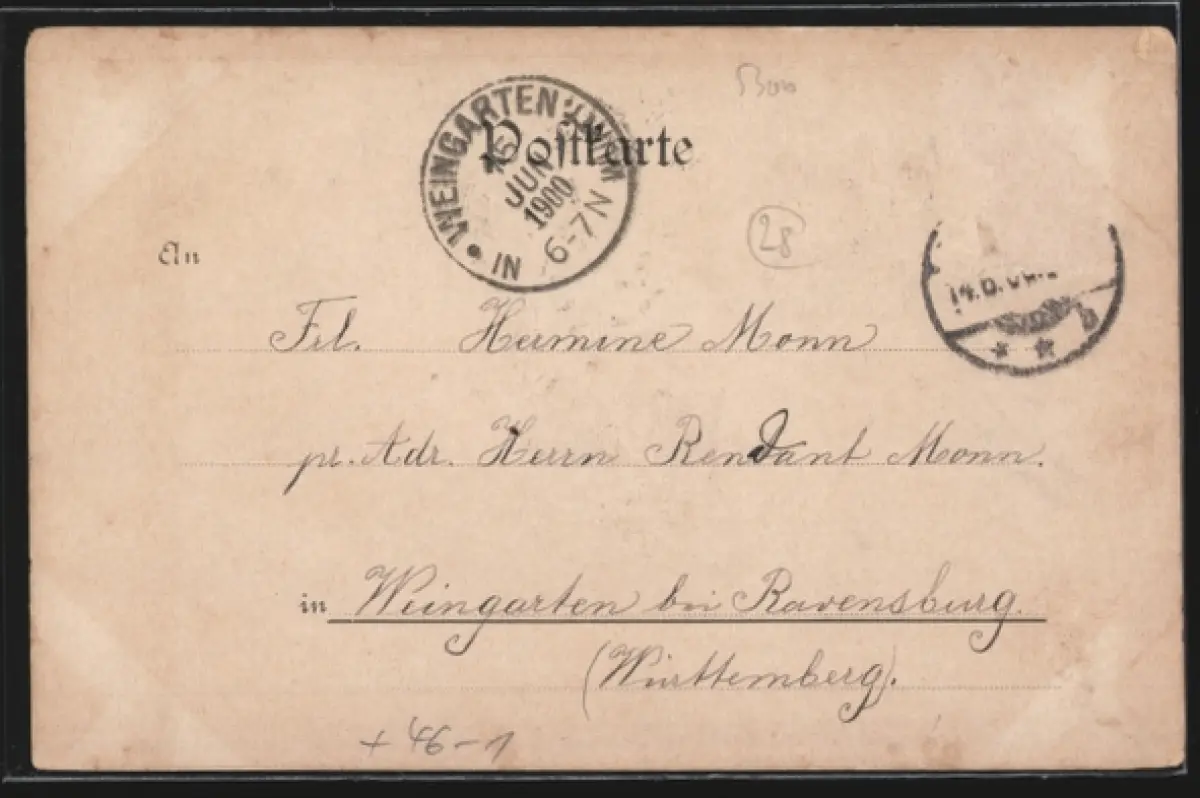 Postkarte
WEINGARTEN
15
JUN
1900
6-7N
IN
28
An
Frl. Hermine Monn
pr. Adr. Herrn Rendant Monn.
in Weingarten bei Ravensburg.
(Württemberg).
+ 46-1